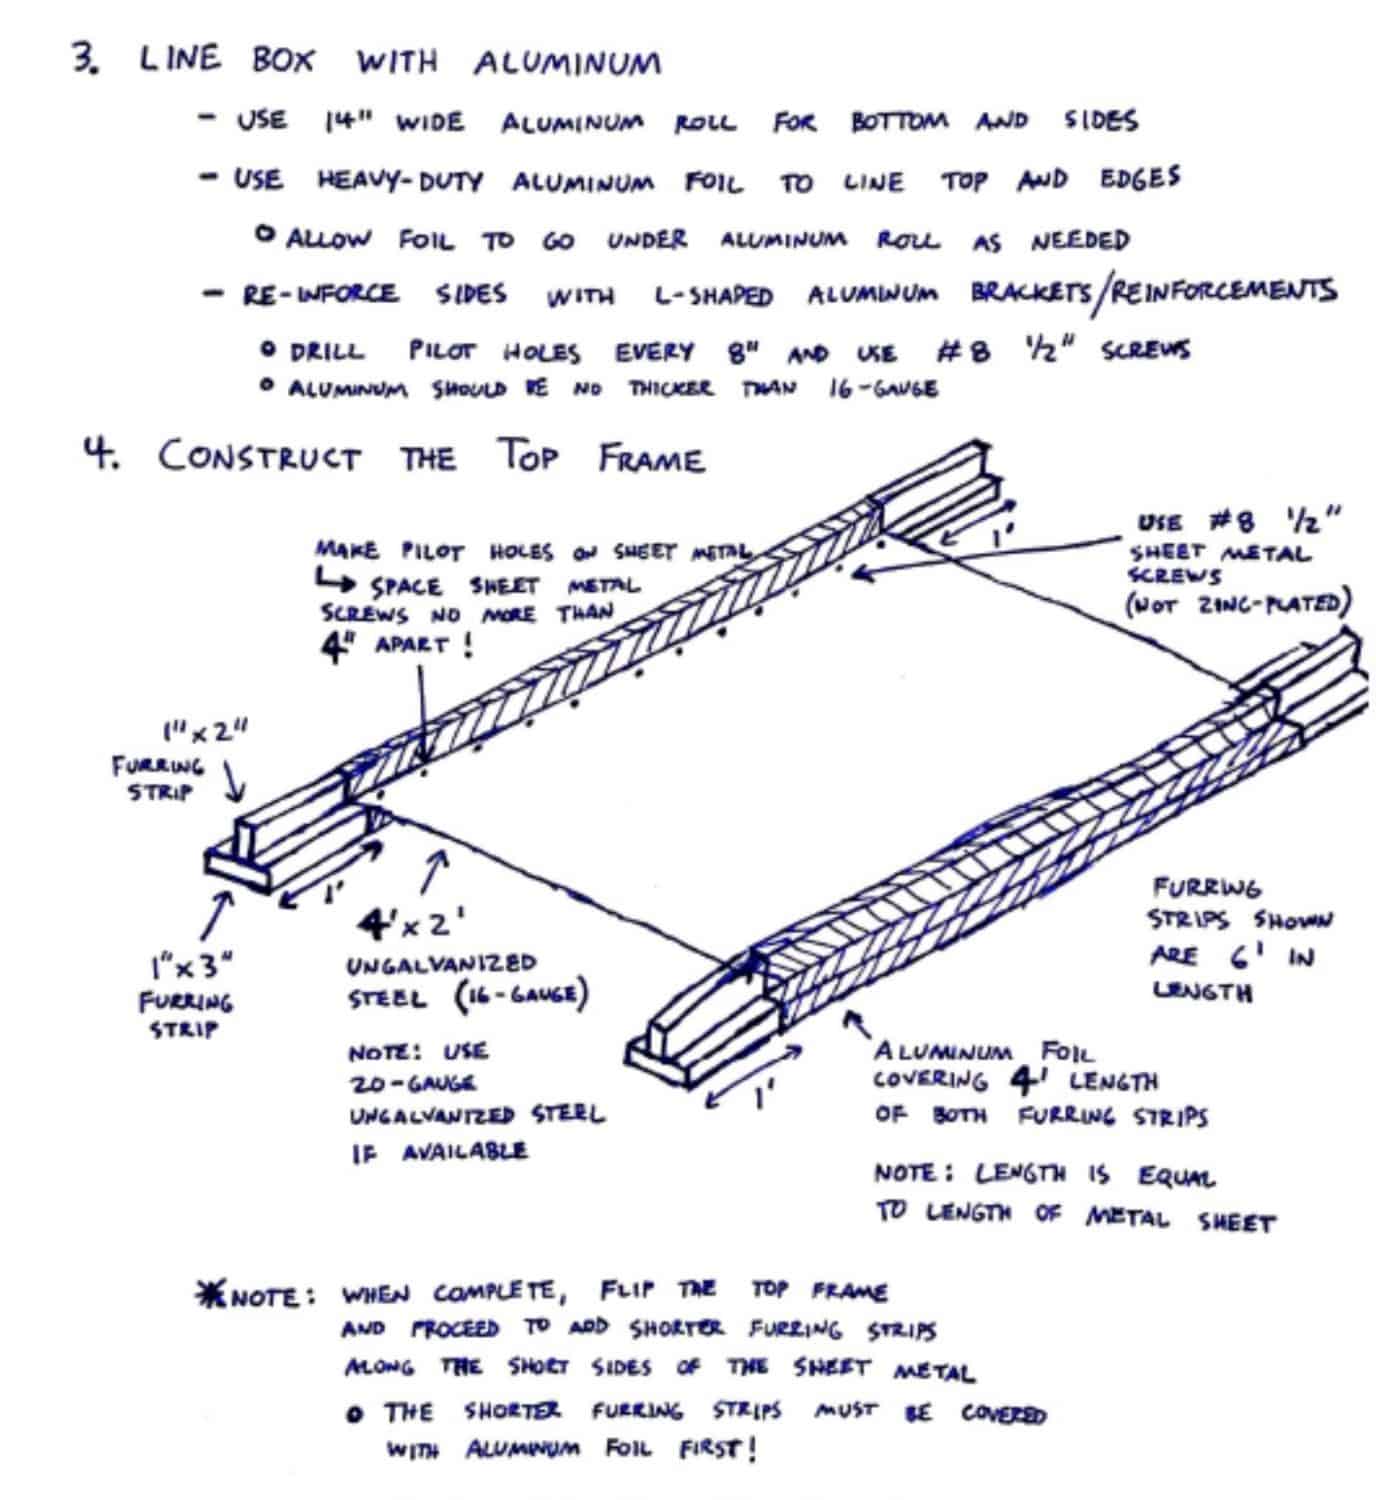 3. LINE BOX WITH ALUMINUM
- USE 14" WIDE ALUMINUM ROLL FOR BOTTOM AND SIDES
- USE HEAVY-DUTY ALUMINUM FOIL TO LINE TOP AND EDGES
o ALLOW FOIL TO GO UNDER ALUMINUM ROLL AS NEEDED
- RE-INFORCE SIDES WITH L-SHAPED ALUMINUM BRACKETS/REINFORCEMENTS
o DRILL PILOT HOLES EVERY 8" AND USE #8 1/2" SCREWS
o ALUMINUM SHOULD BE NO THICKER THAN 16-GAUGE
4. CONSTRUCT THE TOP FRAME
MAKE PILOT HOLES ON SHEET METAL
↳ SPACE SHEET METAL
SCREWS NO MORE THAN
4" APART!
1'
USE #8 1/2"
SHEET METAL
SCREWS
(NOT ZINC-PLATED)
1" x 2"
FURRING
STRIP
1'
1" x 3"
FURRING
STRIP
4' x 2'
UNGALVANIZED
STEEL (16-GAUGE)
NOTE: USE
20-GAUGE
UNGALVANIZED STEEL
IF AVAILABLE
FURRING
STRIPS SHOWN
ARE 6' IN
LENGTH
1'
ALUMINUM FOIL
COVERING 4' LENGTH
OF BOTH FURRING STRIPS
NOTE: LENGTH IS EQUAL
TO LENGTH OF METAL SHEET
*NOTE: WHEN COMPLETE, FLIP THE TOP FRAME
AND PROCEED TO ADD SHORTER FURRING STRIPS
ALONG THE SHORT SIDES OF THE SHEET METAL
o THE SHORTER FURRING STRIPS MUST BE COVERED
WITH ALUMINUM FOIL FIRST!